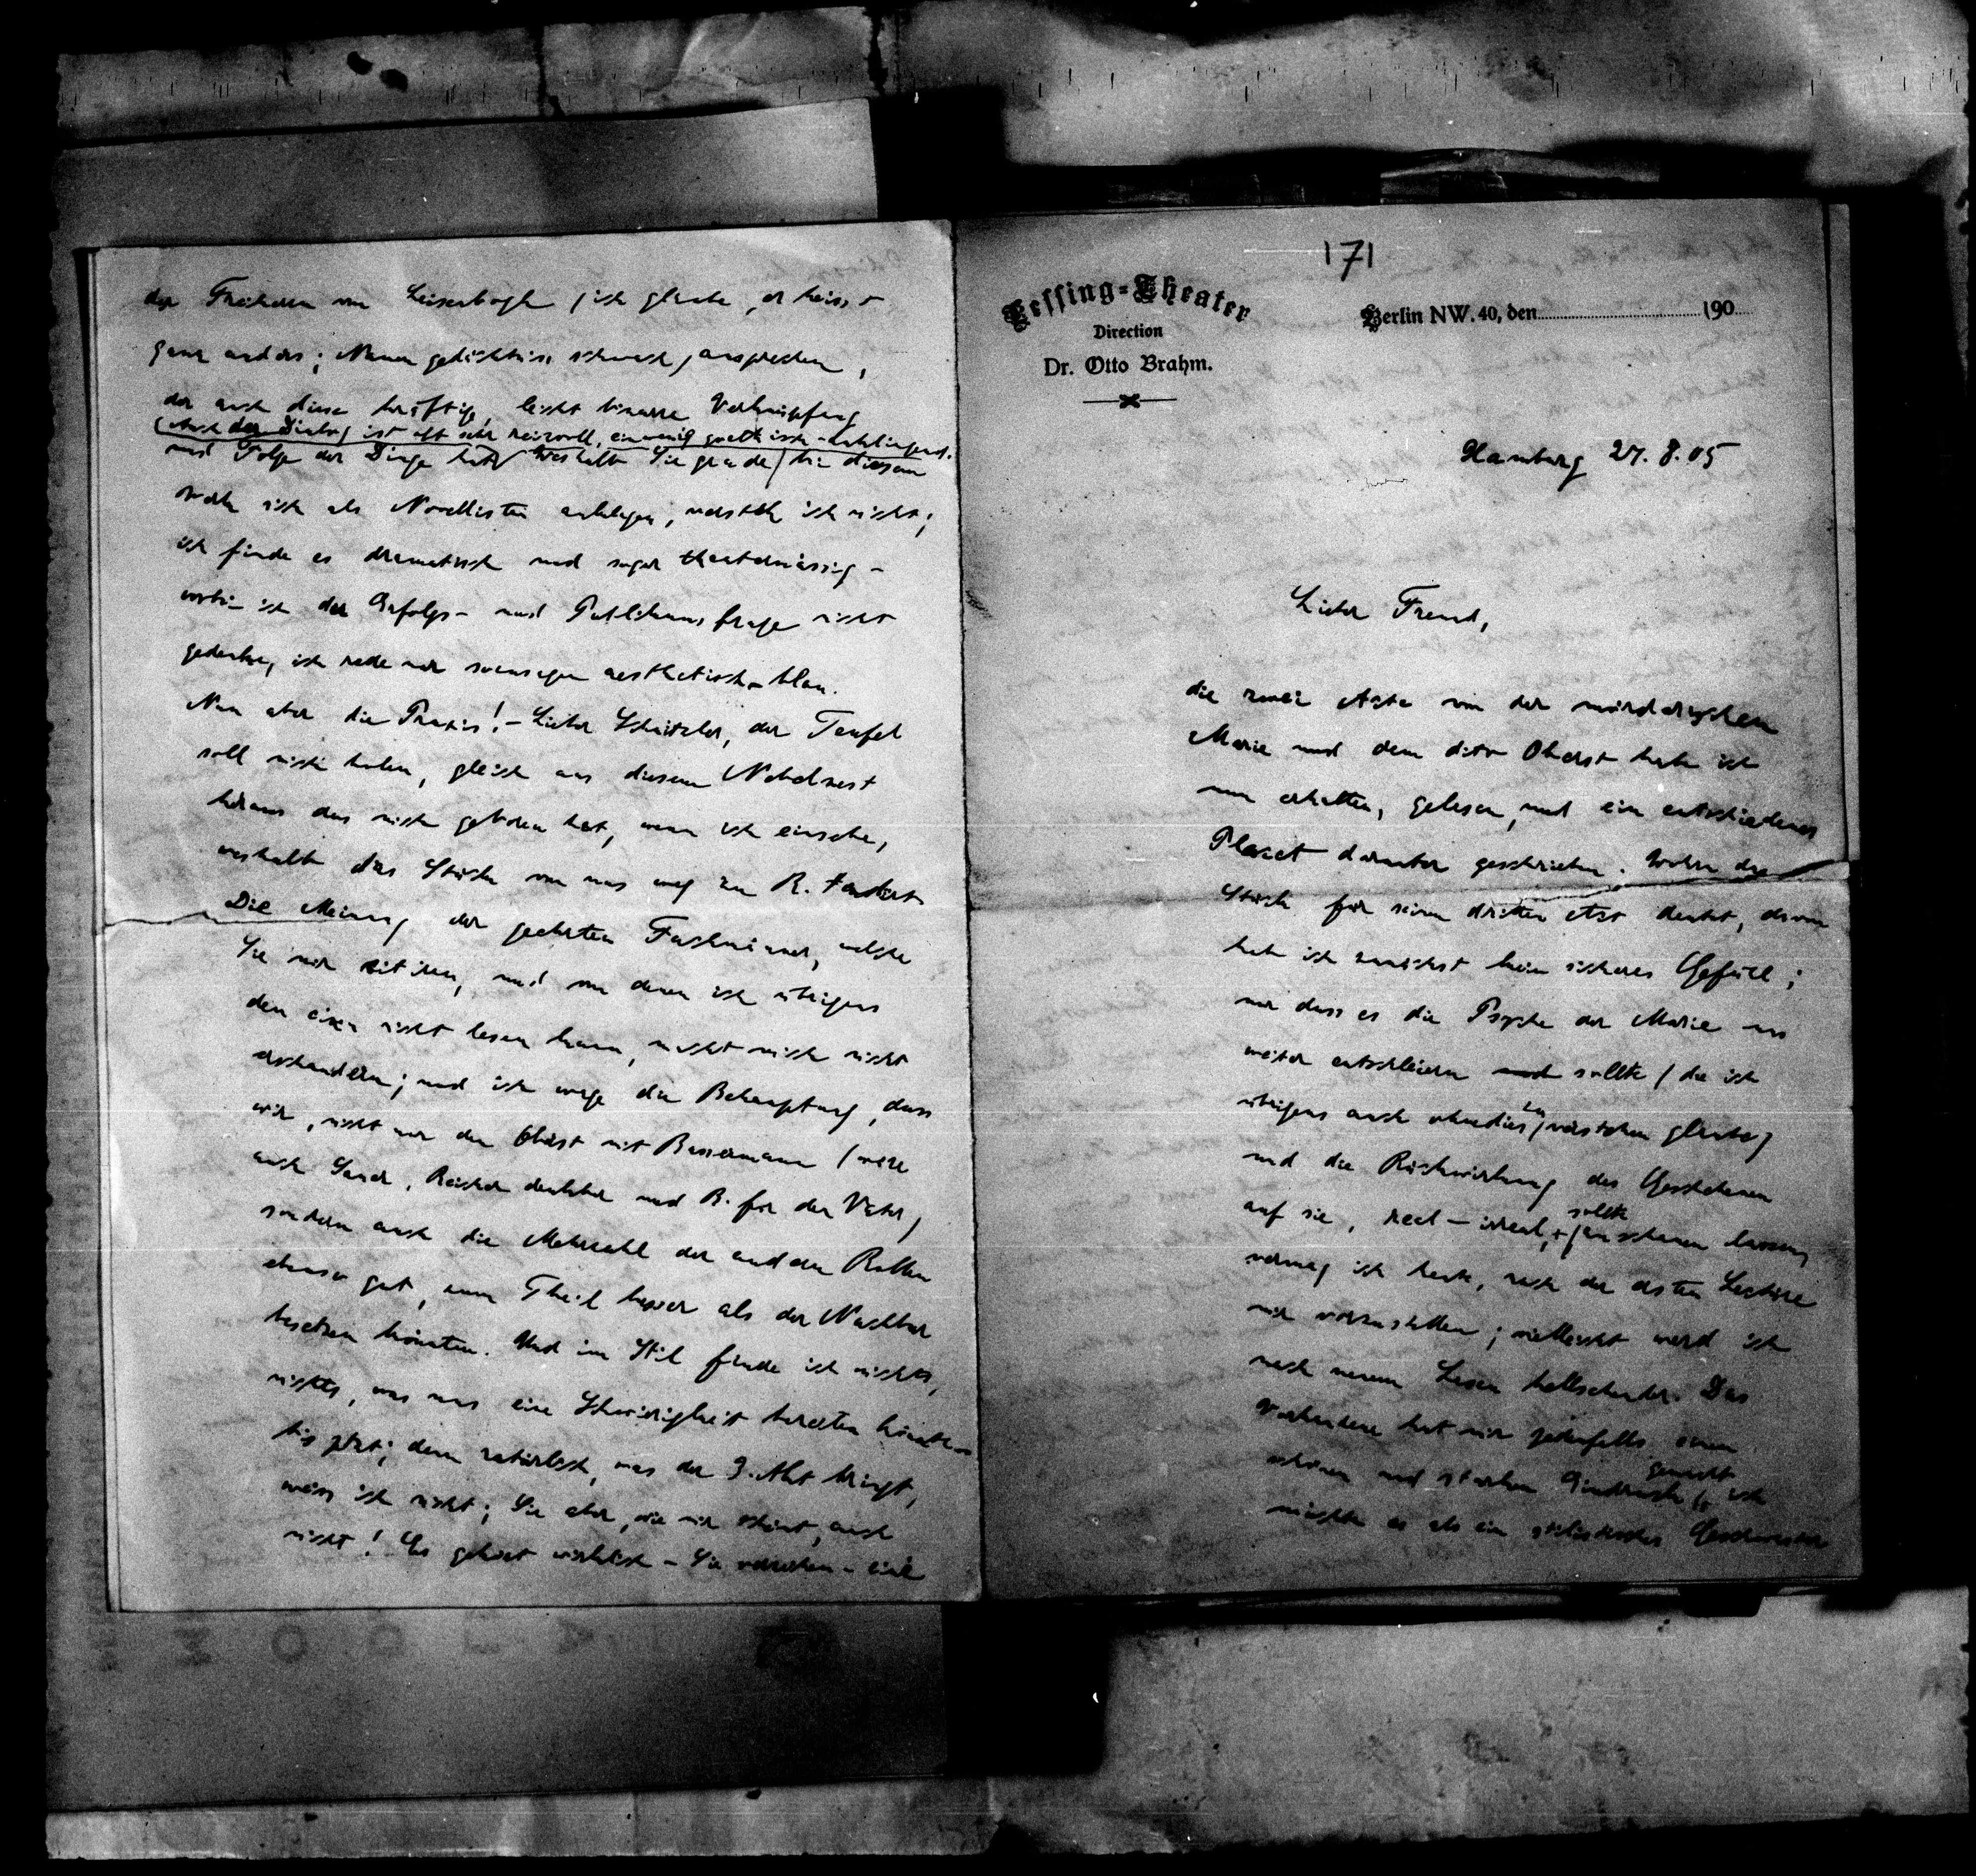 171
Lessing-Theater
Direction
Dr. Otto Brahm.
Berlin NW. 40, den 190
Hamburg 27. 8. 05
Lieber Freund,
die zwei Akte von der mörderischen
Marie und dem dito Oberst habe ich
nun erhalten, gelesen, und ein entschiedenes
Placet darunter geschrieben. Wohin das
Stück für seinen dritten Akt deutet, davon
hab ich zunächst kein sicheres Gefühl;
nur dass es die Psyche der Marie uns
weiter entschleiern sollte (die ich
übrigens auch ohnedies zu verstehen glaube)
und die Rückwirkung des Geschehenen
auf sie, real-irreal, anschauen lassen sollte
vermag ich heute, nach der ersten Lectüre
mir vorzustellen; vielleicht werd ich
nach neuem Lesen hellsehender. Das
Vorhandene hat mir jedenfalls einen
schönen und starken Eindruck gemacht ich
möchte es als ein stilistisches Geschwister
des Freiherrn von Leisenbogh (ich glaube, er heisst
ganz anders; Namengedächtniss schwach) ansprechen,
der auch diese kräftige, leicht bizarre Verknüpfung
und Folge der Dinge hat
(Auch der Dialog ist oft sehr reizvoll, ein wenig goethisch-anklingend.
Weshalb Sie grade bei diesem
Werk sich als Novellisten anklagen, versteh ich nicht;
ich finde es dramatisch und sogar theatermässig –
wobei ich der Erfolgs- und Publikumsfrage nicht
gedenke, ich rede nur sozusagen aesthetisch-blau.
Nun aber die Praxis! – Lieber Schnitzler, der Teufel
soll mich holen, gleich aus diesem Nebelnest
heraus das mich geboren hat, wenn ich einsehe,
weshalb das Stück von uns weg zu R. tendirt.
Die Meinung der geehrten Fachmänner, welche
Sie mir zitiren, und von denen ich übrigens
den einen nicht lesen kann, macht mich nicht
erschaudern; und ich wage die Behauptung, dass
wir, nicht nur den Oberst mit Bassermann (wäre
auch Sauer, Reicher denkbar und B. für den Vater)
sondern auch die Mehrzahl der andern Rollen
ebenso gut, zum Theil besser als der Nachbar
besetzen könnten. Und im Stil finde ich nichts,
nichts, was uns eine Schwierigkeit bereiten könnte –
bis jetzt; denn natürlich, was der 3. Akt bringt,
weiss ich nicht; Sie aber, wie mir scheint, auch
nicht! Es gehört wirklich – Sie verzeihen – eine